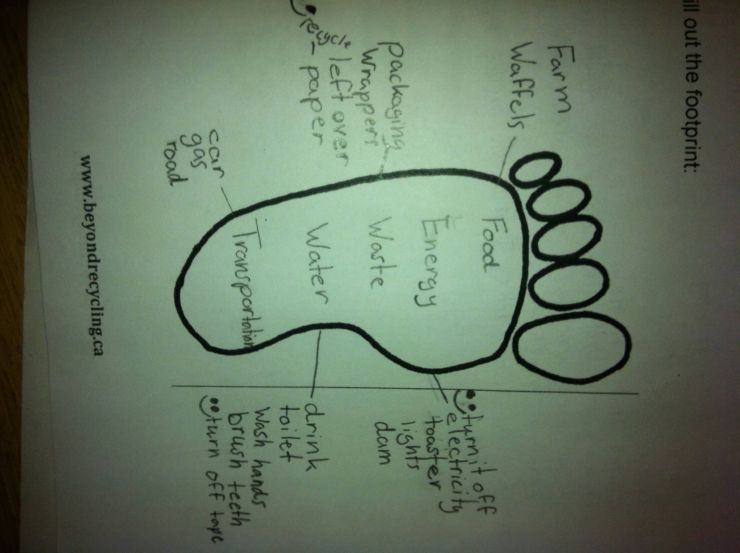 ill out the footprint:
Farm
Waffels
Food
turn it off
electricity
toaster
lights
dam
Energy
packaging
wrappers
left over
- paper
recycle
Waste
Water
drink
toilet
Wash hands
brush teeth
turn off tape
Transportation
car
gas
road
www.beyondrecycling.ca